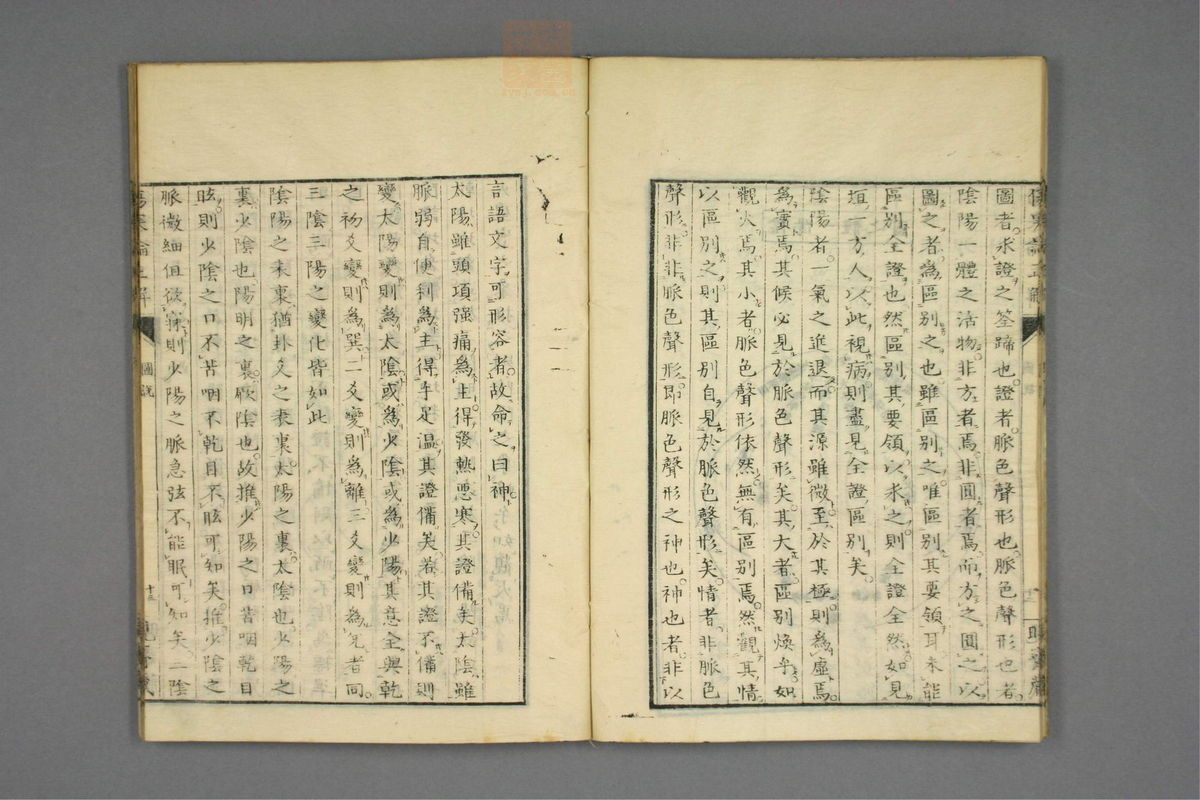 圖者求證之筌蹄也證者脈色聲形也脈色聲形也者
陰陽一體之活物非方者焉非圓者焉而方之圓之以
圖之者為區別之也雖區別之唯區別其要領耳未能
區別全證也然區別其要領以求之則全證全然如見
垣一方人以此視病則盡見全證區別矣
陰陽者一氣之進退而其源雖微至於其極則為虛焉
為實焉其候必見於脈色聲形矣其大者區別煥乎如
觀火焉其小者脈色聲形依然無有區別焉然觀其情
以區別之則其區別自見於脈色聲形矣情者非脈色
聲形非非脈色聲形即脈色聲形之神也神也者非以
言語文字可形容者故命之曰神
太陽雖頭項强痛為主得發熱惡寒其證備矣太陰雖
脈弱自便利為主得手足溫其證備矣若其證不備則
變太陽變則為太陰或為少陰或為少陽其意全與乾
之初爻變則為巽二爻變則為離三爻變則為兌者同
三陰三陽之變化皆如此
陰陽之表裏猶卦爻之表裏太陽之裏太陰也少陽之
裏少陰也陽明之裏厥陰也故推少陽之口苦咽乾目
眩則少陰之口不苦咽不乾目不眩可知矣推少陰之
脈微細但欲寐則少陽之脈急弦不能眠可知矣二陰
圖說
十三